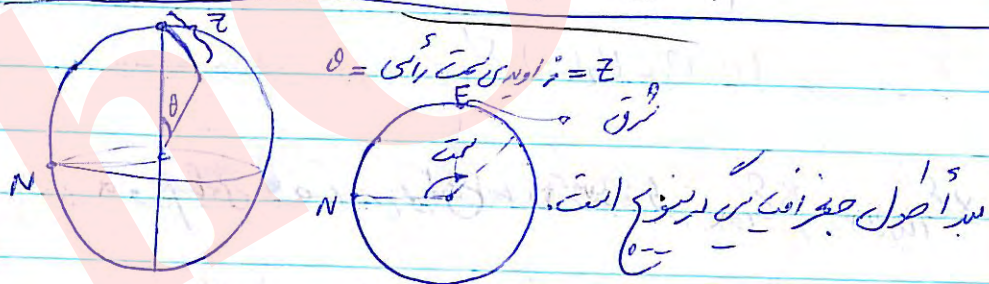 Z
θ = زاویه‌ی سمت رأسی = Z
θ
E
شرق
سمت
N
N
مبدأ طول جغرافیایی گرینویچ است.